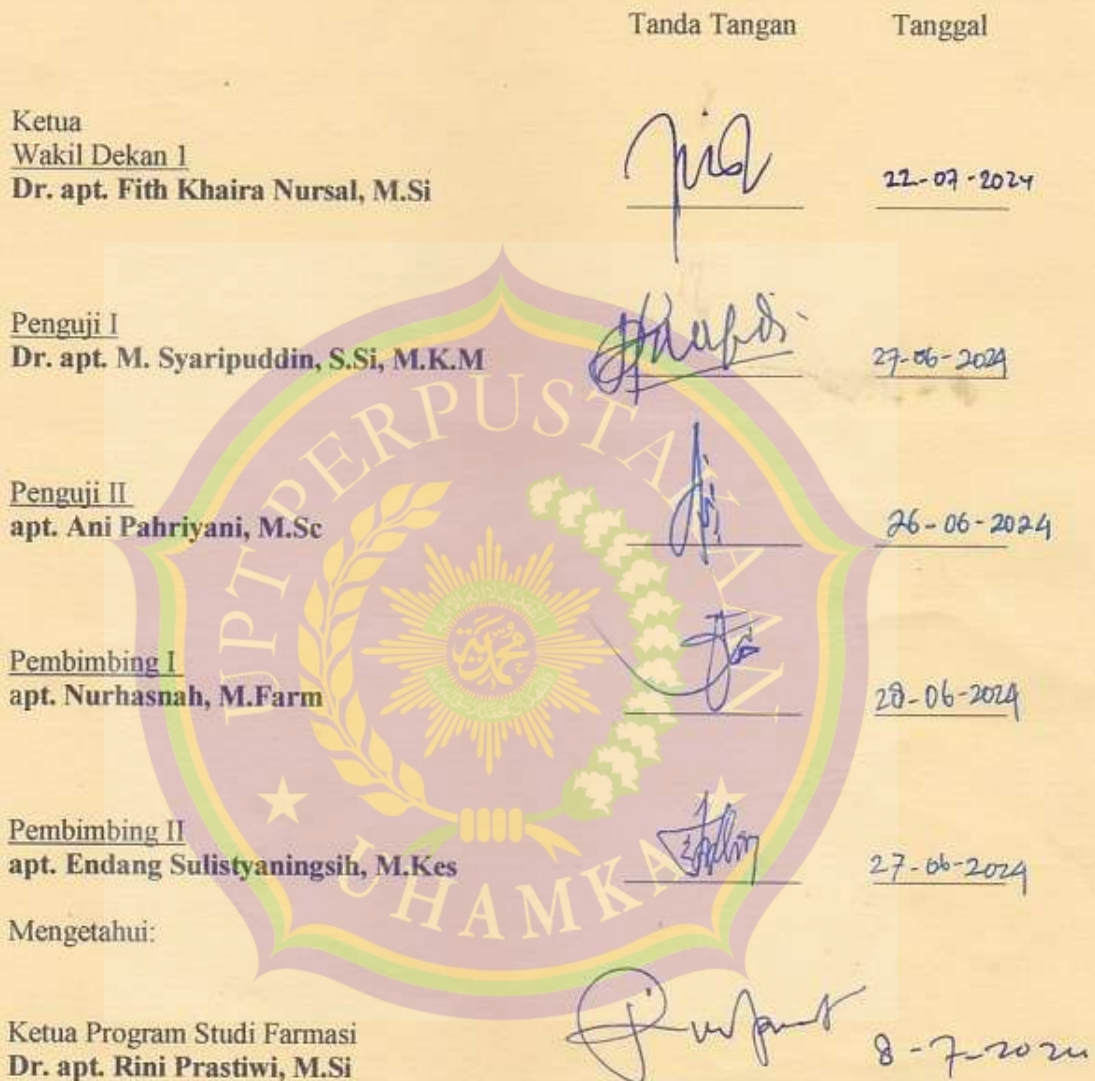 Tanda Tangan Tanggal
Ketua
Wakil Dekan 1
Dr. apt. Fith Khaira Nursal, M.Si 22-07-2024
Penguji I
Dr. apt. M. Syaripuddin, S.Si, M.K.M 27-06-2024
Penguji II
apt. Ani Pahriyani, M.Sc 26-06-2024
Pembimbing I
apt. Nurhasnah, M.Farm 28-06-2024
Pembimbing II
apt. Endang Sulistyaningsih, M.Kes 27-06-2024
Mengetahui:
Ketua Program Studi Farmasi
Dr. apt. Rini Prastiwi, M.Si 8-7-2024
UPT PERPUSTAKAAN
UHAMKA